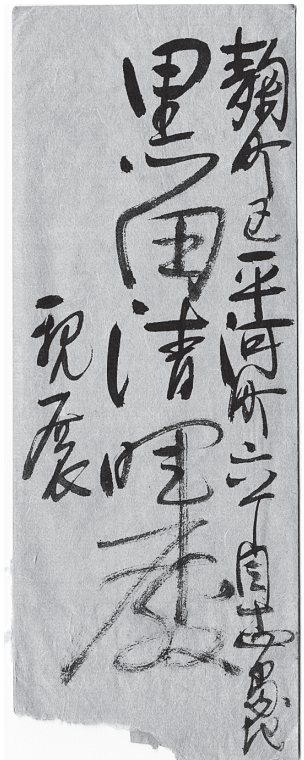 麹町区平河町六丁目廿四番地
黒田清輝殿
親展